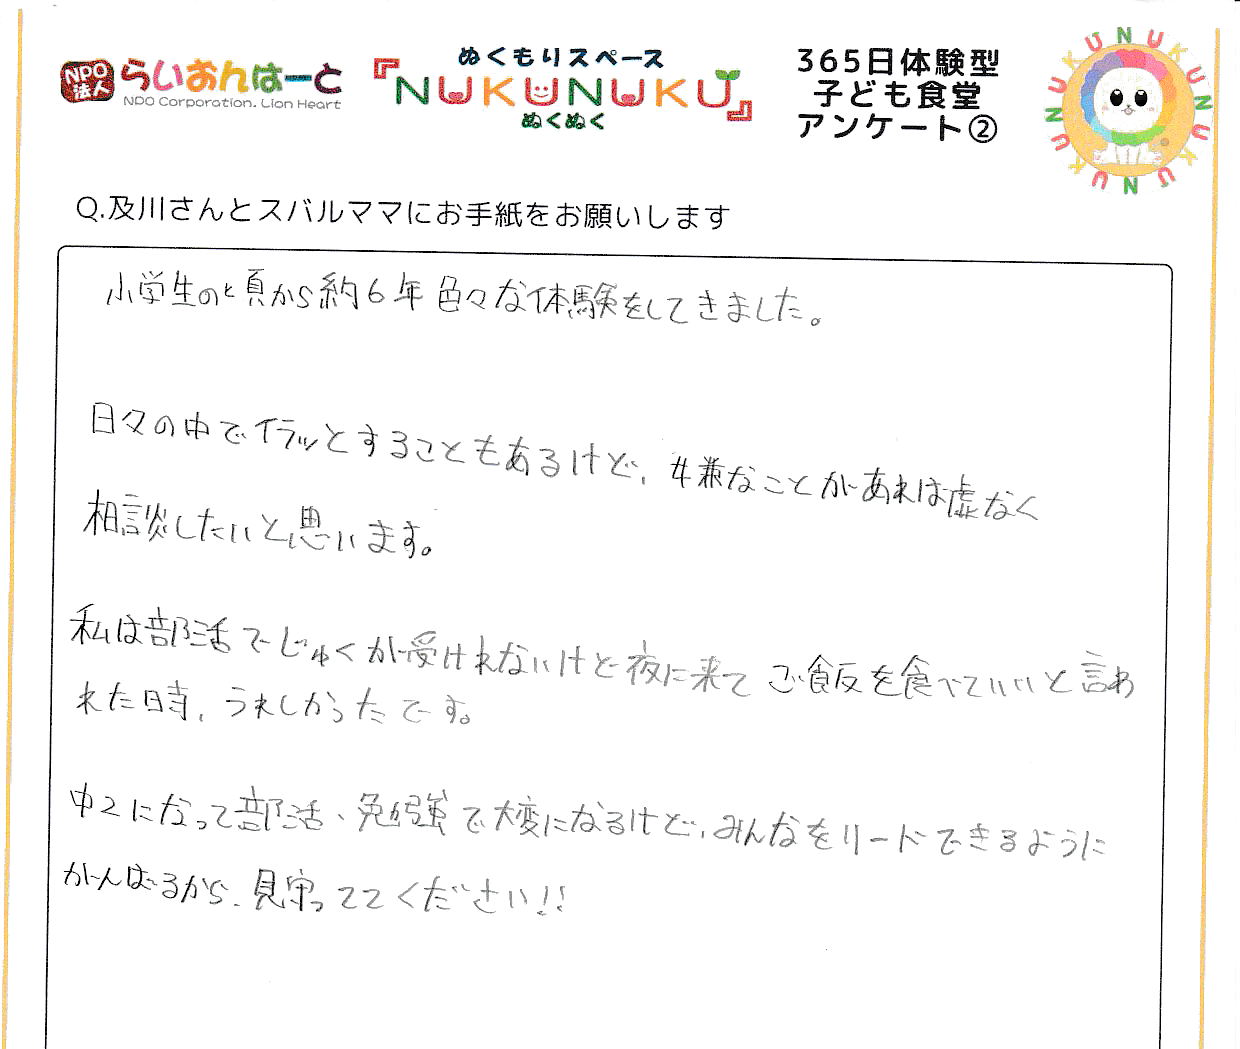 NDO法人 らいおんはーと
NDO Corporation. Lion Heart
ぬくもりスペース
『NUKUNUKU』
ぬくぬく
365日体験型
子ども食堂
アンケート②
NUKUNUKUNUKUNUKU
Q.及川さんとスバルママにお手紙をお願いします
小学生のと頃から約6年色々な体験をしてきました。
日々の中でイラッとすることもあるけど、嫌なことがあれは虚なく
相談したいと思います。
私は部活でじゅくが受けれないけど夜に来てご飯を食べていいと言わ
れた時、うれしかったです。
中2になって部活、勉強で大変になるけど、みんなをリードできるように
がんばるから、見守っててください!!